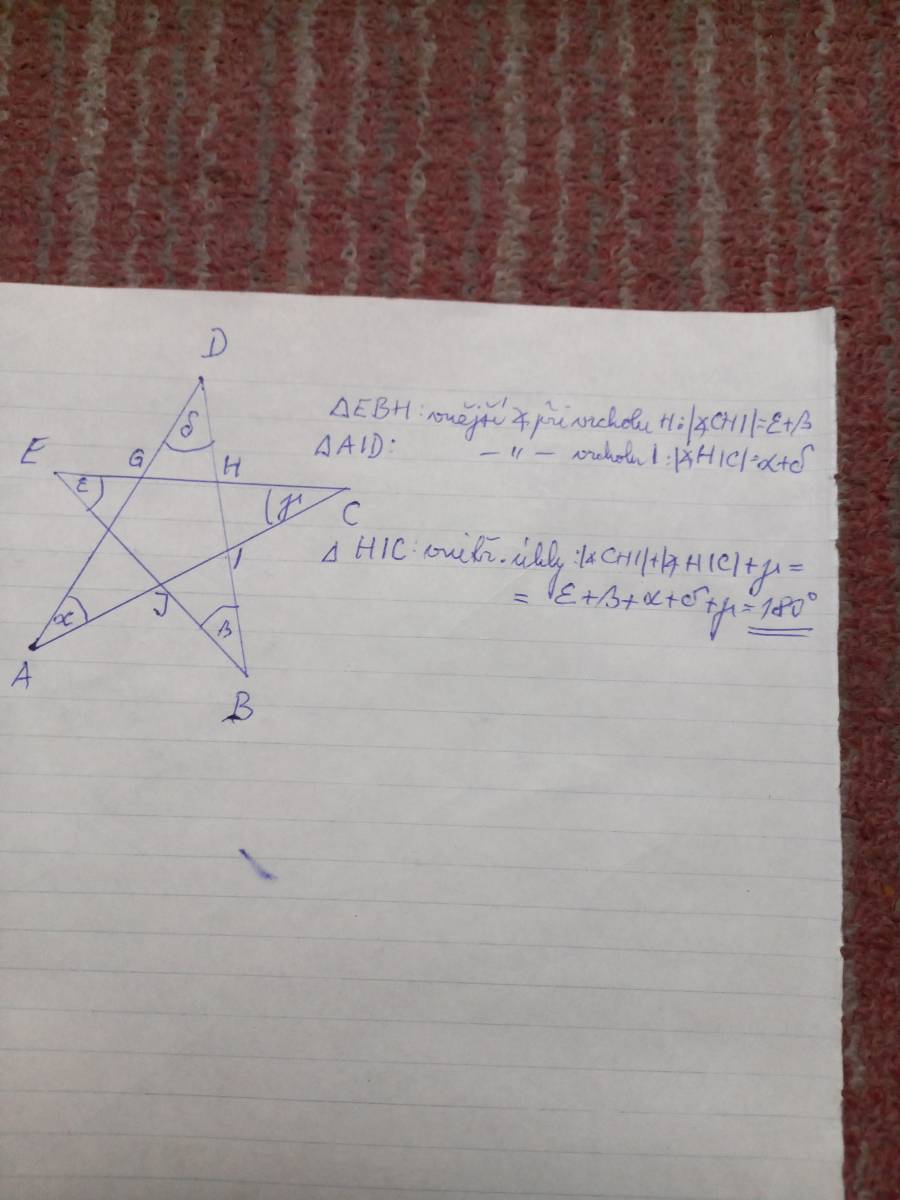 D
E
G
H
δ
ε
γ
C
I
α
J
β
A
B
△EBH: vnější ∢ při vrcholu H: |∢CHI| = ε+β
△AID: -〃- vrcholu I: |∢HIC| = α+δ
△ HIC: vnitř. úhly: |∢CHI|+|∢HIC|+γ =
= ε+β+α+δ+γ = 180°